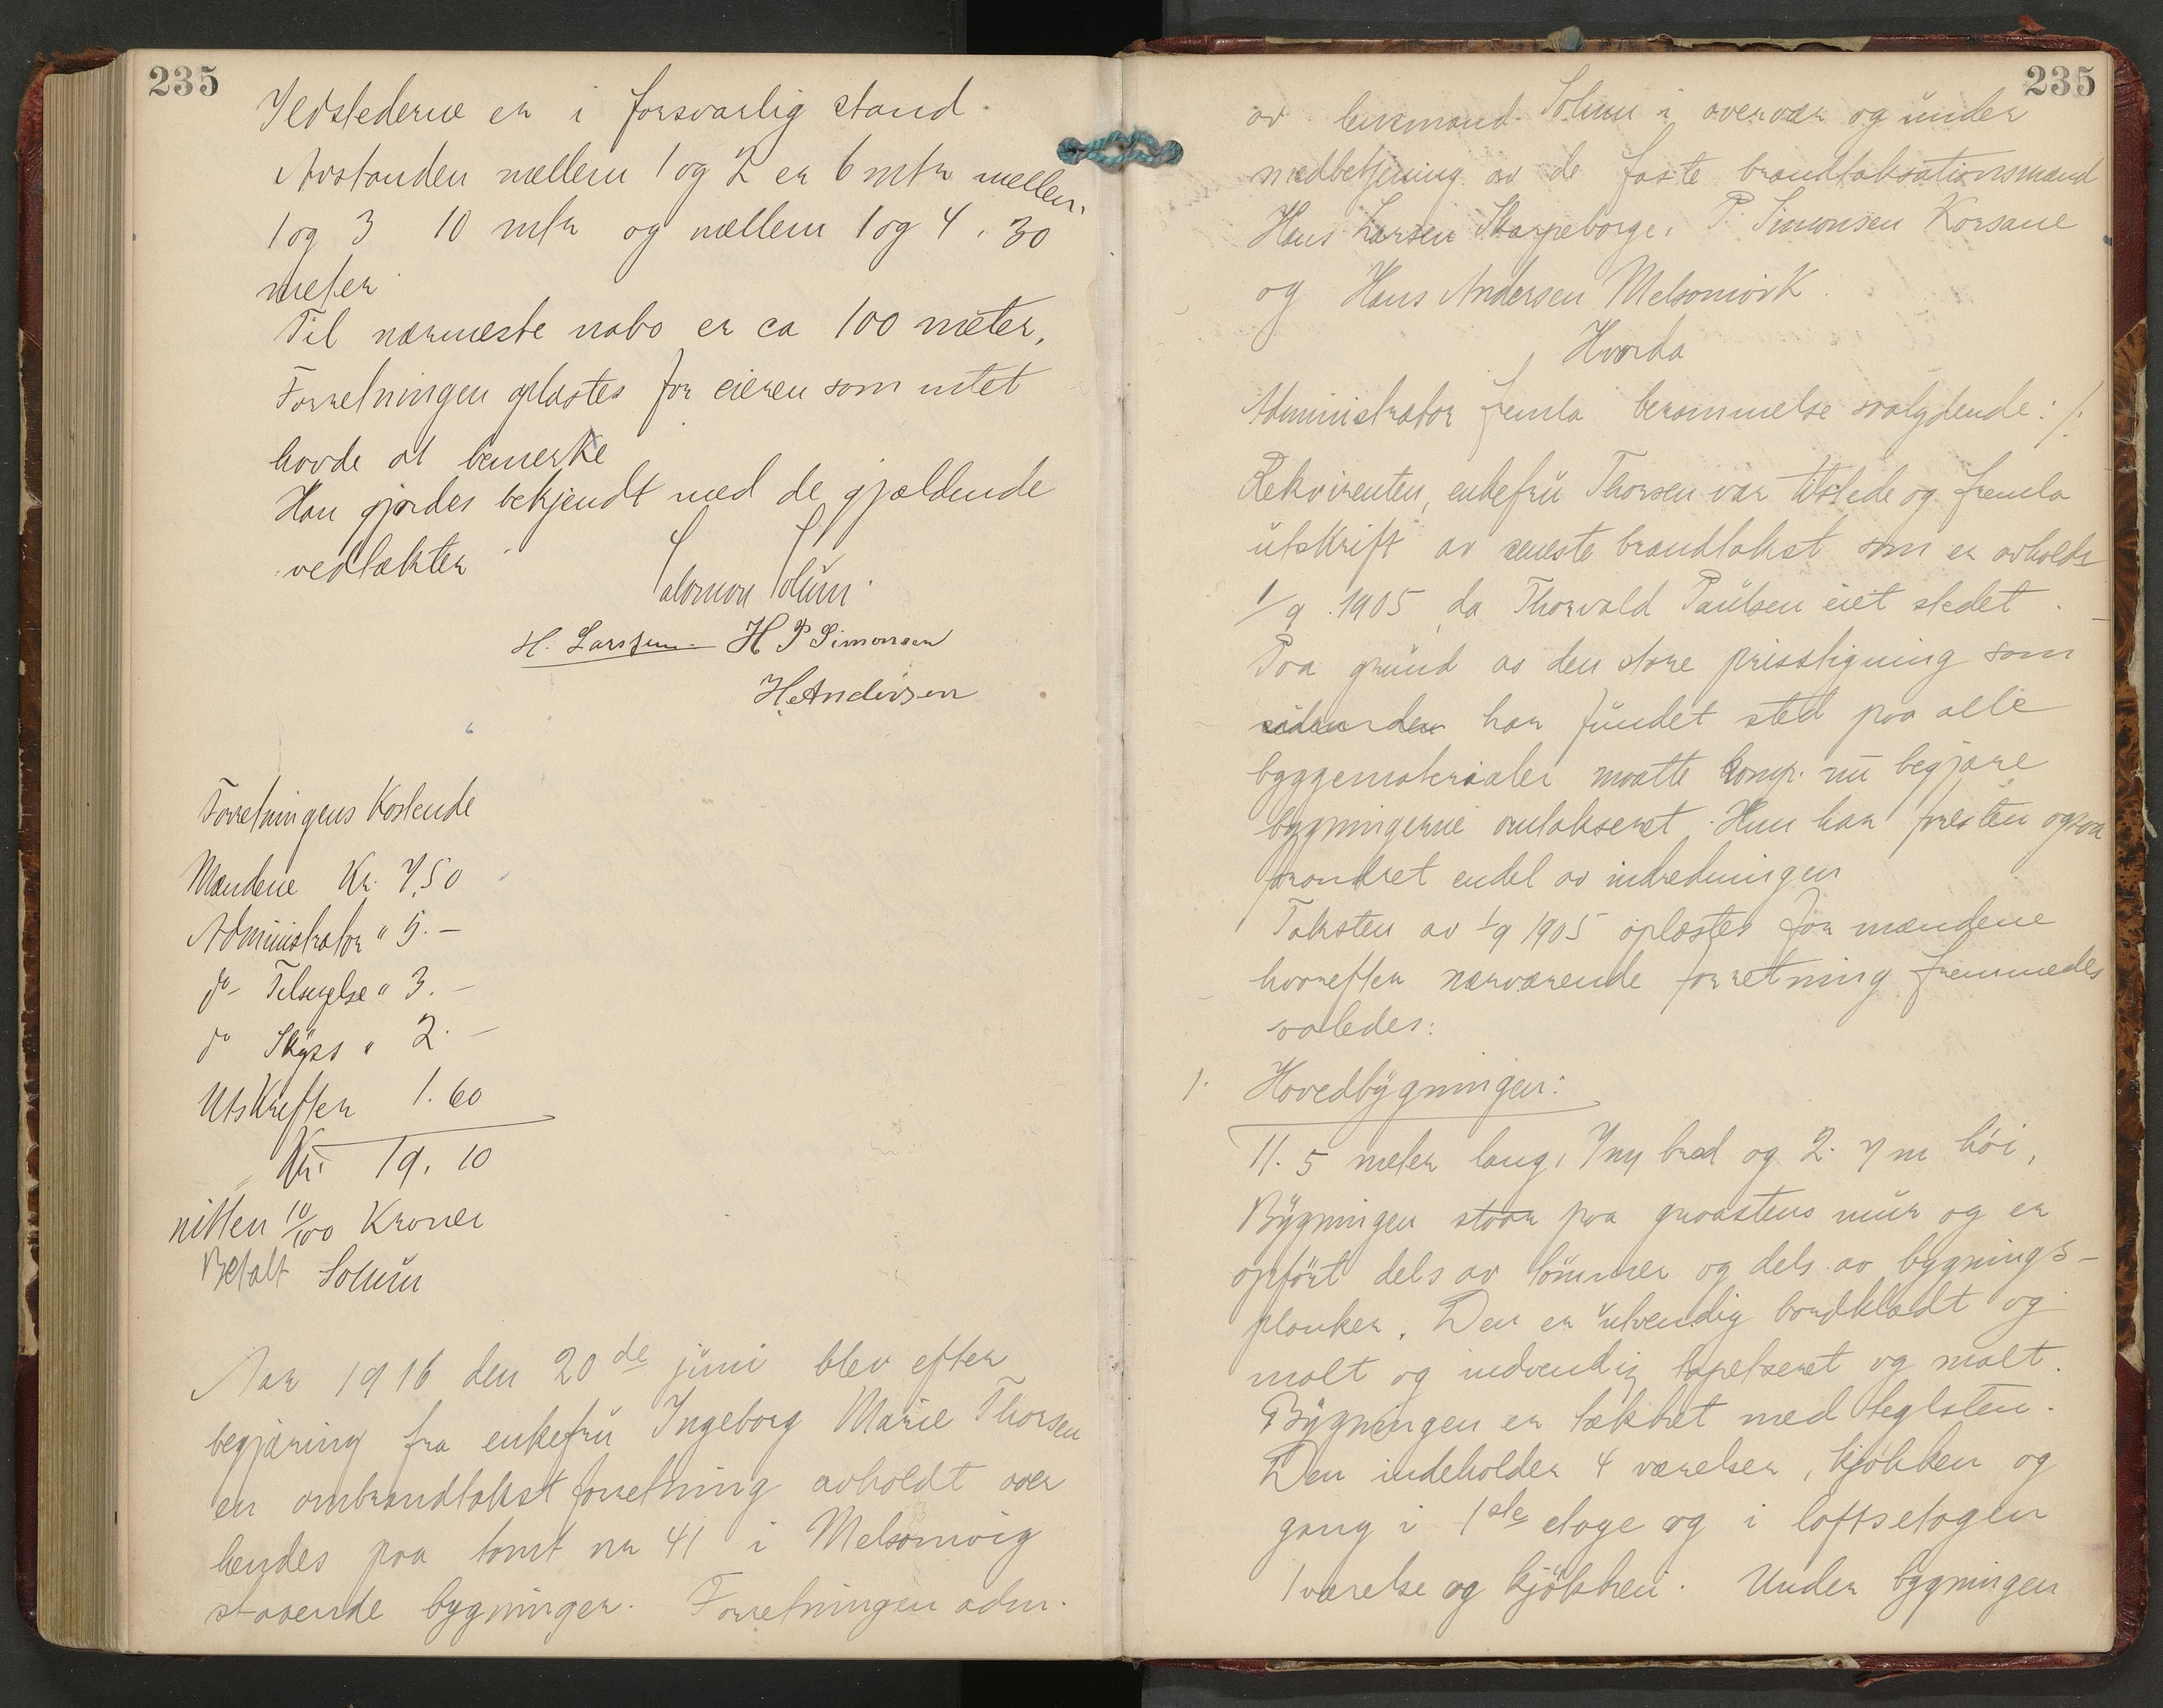 235
Ildstederne er i forsvarlig stand.
Avstanden mellem 1 og 2 er 6 mtr mellem
1 og 3 10 mtr og mellem 1 og 4. 30
meter
Til nærmeste nabo er ca 100 meter.
Forretningen oplæstes for eieren som intet
havde at bemerke
Han gjordes bekjendt med de gjældende
vedtækter
Salomon Solum.
H. Larssen. H P Simonsen
H. Andersen
Forretningens Kostende
Mændene Kr. 7,50
Administrator " 5. –
do – Tilsigelse " 3. –
do Skyss " 2. –
Utskriften 1. 60
Kr. 19. 10
nitten 10/100 Kroner
Betalt Solum
Aar 1916 den 20de juni blev efter
begjæring fra enkefru Ingeborg Marie Thorsen
en ombrandtakstforretning avholdt over
hendes paa tomt nr 41 i Melsomvig
staaende bygninger. Forretningen adm.
235
av lensmand Solum i overvær og under
medbetjening av de faste brandtaksationsmænd
Hans Larsen Skarpeborge, P. Simonsen Korsane
og Hans Andersen Melsomvik.
Hvorda
Administrator fremla berammelse saalydende: /.
Rekvirenten, enkefru Thorsen var tilstede og fremla
utskrift av seneste brandtakst som er avholdt
1/9 1905 da Thorvald Paulsen eiet stedet.
Paa grund av den store prisstigning som
siden den har fundet sted paa alle
byggematerialer maatte komp. nu begjære
bygningerne omtakseret. Hun har forresten ogsaa
forandret endel av indredningen
Taksten av 1/9 1905 oplæstes for mændene
hvorefter nærværende forretning fremmedes
saaledes:
1. Hovedbygningen:
11. 5 meter lang, 7 m bred og 2. 7 m høi,
Bygningen staar paa graastens mur og er
opført dels av tømmer og dels av bygnings-
planker. Den er utvendig bordklædt og
malt og indvendig tapetseret og malt.
Bygningen er tækket med teglsten.
Den indeholder 4 værelser, kjøkken og
gang i 1ste etage og i loftsetagen
1 værelse og kjøkken. Under bygningen